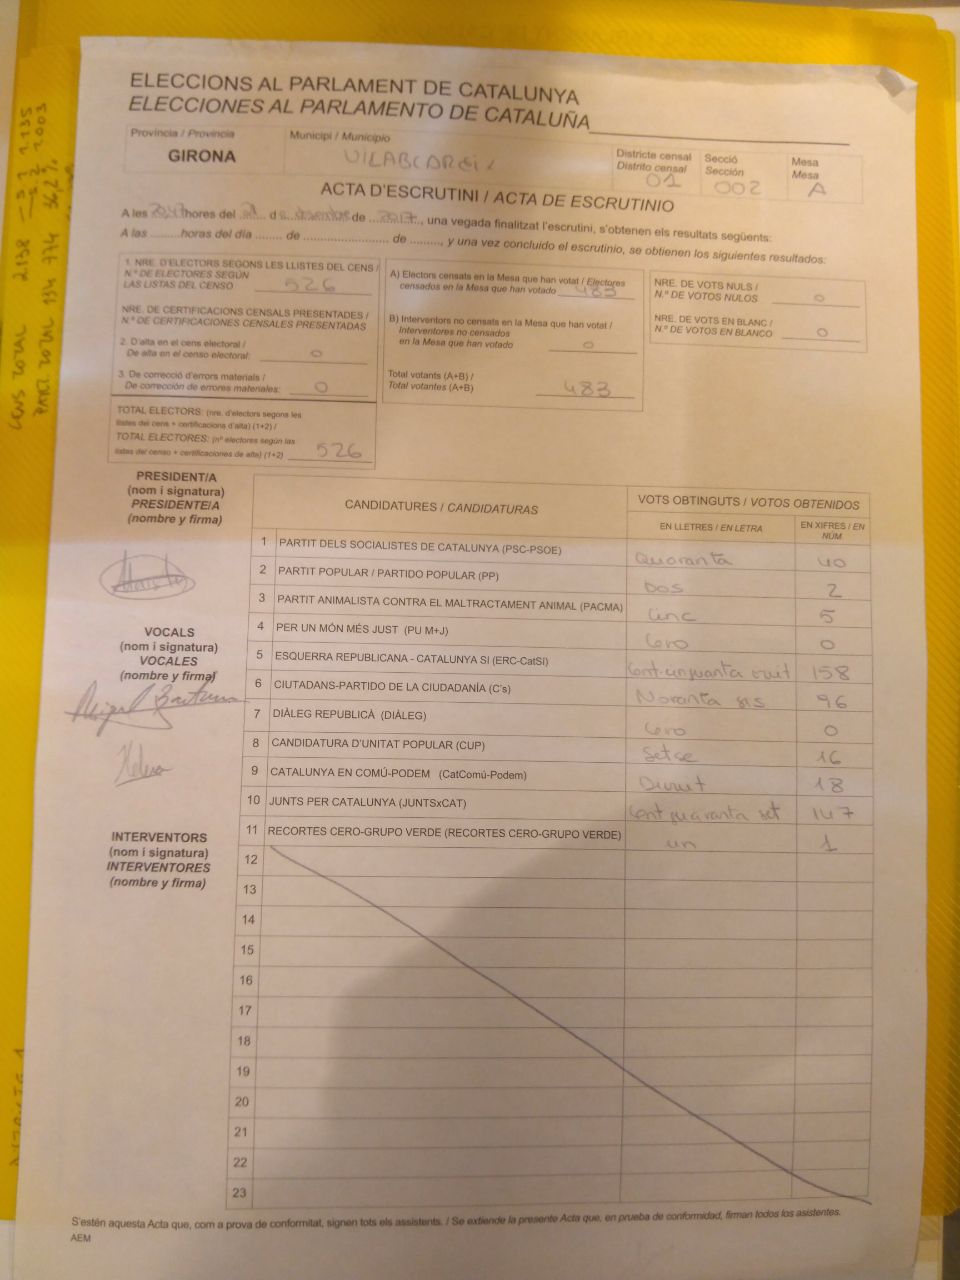 ELECCIONS AL PARLAMENT DE CATALUNYA
ELECCIONES AL PARLAMENTO DE CATALUÑA
Província / Provincia
GIRONA
Municipi / Municipio
Districte censal
Distrito censal
01
Secció
Sección
002
Mesa
Mesa
A
ACTA D'ESCRUTINI / ACTA DE ESCRUTINIO
A les hores del d de 2017, una vegada finalitzat l'escrutini, s'obtenen els resultats següents:
A las ......... horas del día ........ de .......................... de .........., y una vez concluido el escrutinio, se obtienen los siguientes resultados:
1. NRE. D'ELECTORS SEGONS LES LLISTES DEL CENS /
N.º DE ELECTORES SEGÚN
LAS LISTAS DEL CENSO 526
NRE. DE CERTIFICACIONS CENSALS PRESENTADES /
N.º DE CERTIFICACIONES CENSALES PRESENTADAS
2. D'alta en el cens electoral /
De alta en el censo electoral: 0
3. De correcció d'errors materials /
De corrección de errores materiales: 0
TOTAL ELECTORS: (nre. d'electors segons les
llistes del cens + certificacions d'alta) (1+2) /
TOTAL ELECTORES: (nº electores según las
listas del censo + certificaciones de alta) (1+2) 526
A) Electors censats en la Mesa que han votat / Electores
censados en la Mesa que han votado 483
B) Interventors no censats en la Mesa que han votat /
Interventores no censados
en la Mesa que han votado 0
Total votants (A+B) /
Total votantes (A+B) 483
NRE. DE VOTS NULS /
N.º DE VOTOS NULOS 0
NRE. DE VOTS EN BLANC /
N.º DE VOTOS EN BLANCO 0
PRESIDENT/A
(nom i signatura)
PRESIDENTE/A
(nombre y firma)
VOCALS
(nom i signatura)
VOCALES
(nombre y firma)
INTERVENTORS
(nom i signatura)
INTERVENTORES
(nombre y firma)
CANDIDATURES / CANDIDATURAS
VOTS OBTINGUTS / VOTOS OBTENIDOS
EN LLETRES / EN LETRA
EN XIFRES / EN NÚM.
1 PARTIT DELS SOCIALISTES DE CATALUNYA (PSC-PSOE) Quaranta 40
2 PARTIT POPULAR / PARTIDO POPULAR (PP) Dos 2
3 PARTIT ANIMALISTA CONTRA EL MALTRACTAMENT ANIMAL (PACMA) Cinc 5
4 PER UN MÓN MÉS JUST (PU M+J) Cero 0
5 ESQUERRA REPUBLICANA - CATALUNYA SI (ERC-CatSI) vuit 158
6 CIUTADANS-PARTIDO DE LA CIUDADANÍA (C's) Noranta sis 96
7 DIÀLEG REPUBLICÀ (DIÀLEG) Cero 0
8 CANDIDATURA D'UNITAT POPULAR (CUP) Setce 16
9 CATALUNYA EN COMÚ-PODEM (CatComú-Podem) Divuit 18
10 JUNTS PER CATALUNYA (JUNTSxCAT) Cent quaranta set 147
11 RECORTES CERO-GRUPO VERDE (RECORTES CERO-GRUPO VERDE) un 1
12
13
14
15
16
17
18
19
20
21
22
23
S'estén aquesta Acta que, com a prova de conformitat, signen tots els assistents. / Se extiende la presente Acta que, en prueba de conformidad, firman todos los asistentes.
AEM